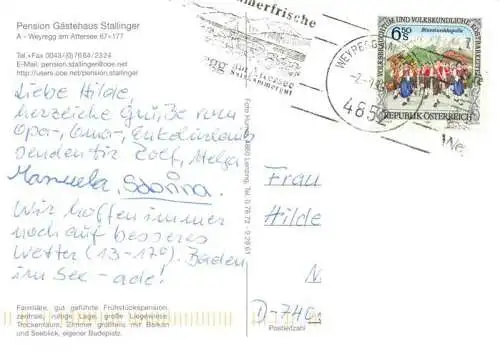 Pension Gästehaus Stallinger
A - Weyregg am Attersee 67+177
Tel.+Fax 0043/(0)7664/2324
E-Mail: pension.stallinger@ooe.net
http://users.ooe.net/pension.stallinger
Liebe Hilde,
herzliche Grüße vom
Opa-, Oma-, Enkelurlaub
senden Dir Rolf, Helga
Manuela, Sabrina.
Wir hoffen immer
noch auf besseres
Wetter (13-17°). Baden
im See - ade!
Familiäre, gut geführte Frühstückspension,
zentrale, ruhige Lage, große Liegewiese,
Trockensauna, Zimmer größtenteils mit Balkon
und Seeblick, eigener Badeplatz.
4880 Lenzing, Tel. 0 76 72 - 9 29 61
merfrische
Attersee
WEYREGG
4852
6.50 S
Blumenkapelle
VOLKSBRAUCHTUM UND VOLKSKUNDLICHE KOSTBARKEITEN
REPUBLIK ÖSTERREICH
We
Frau
Hilde
D-740
Postleitzahl